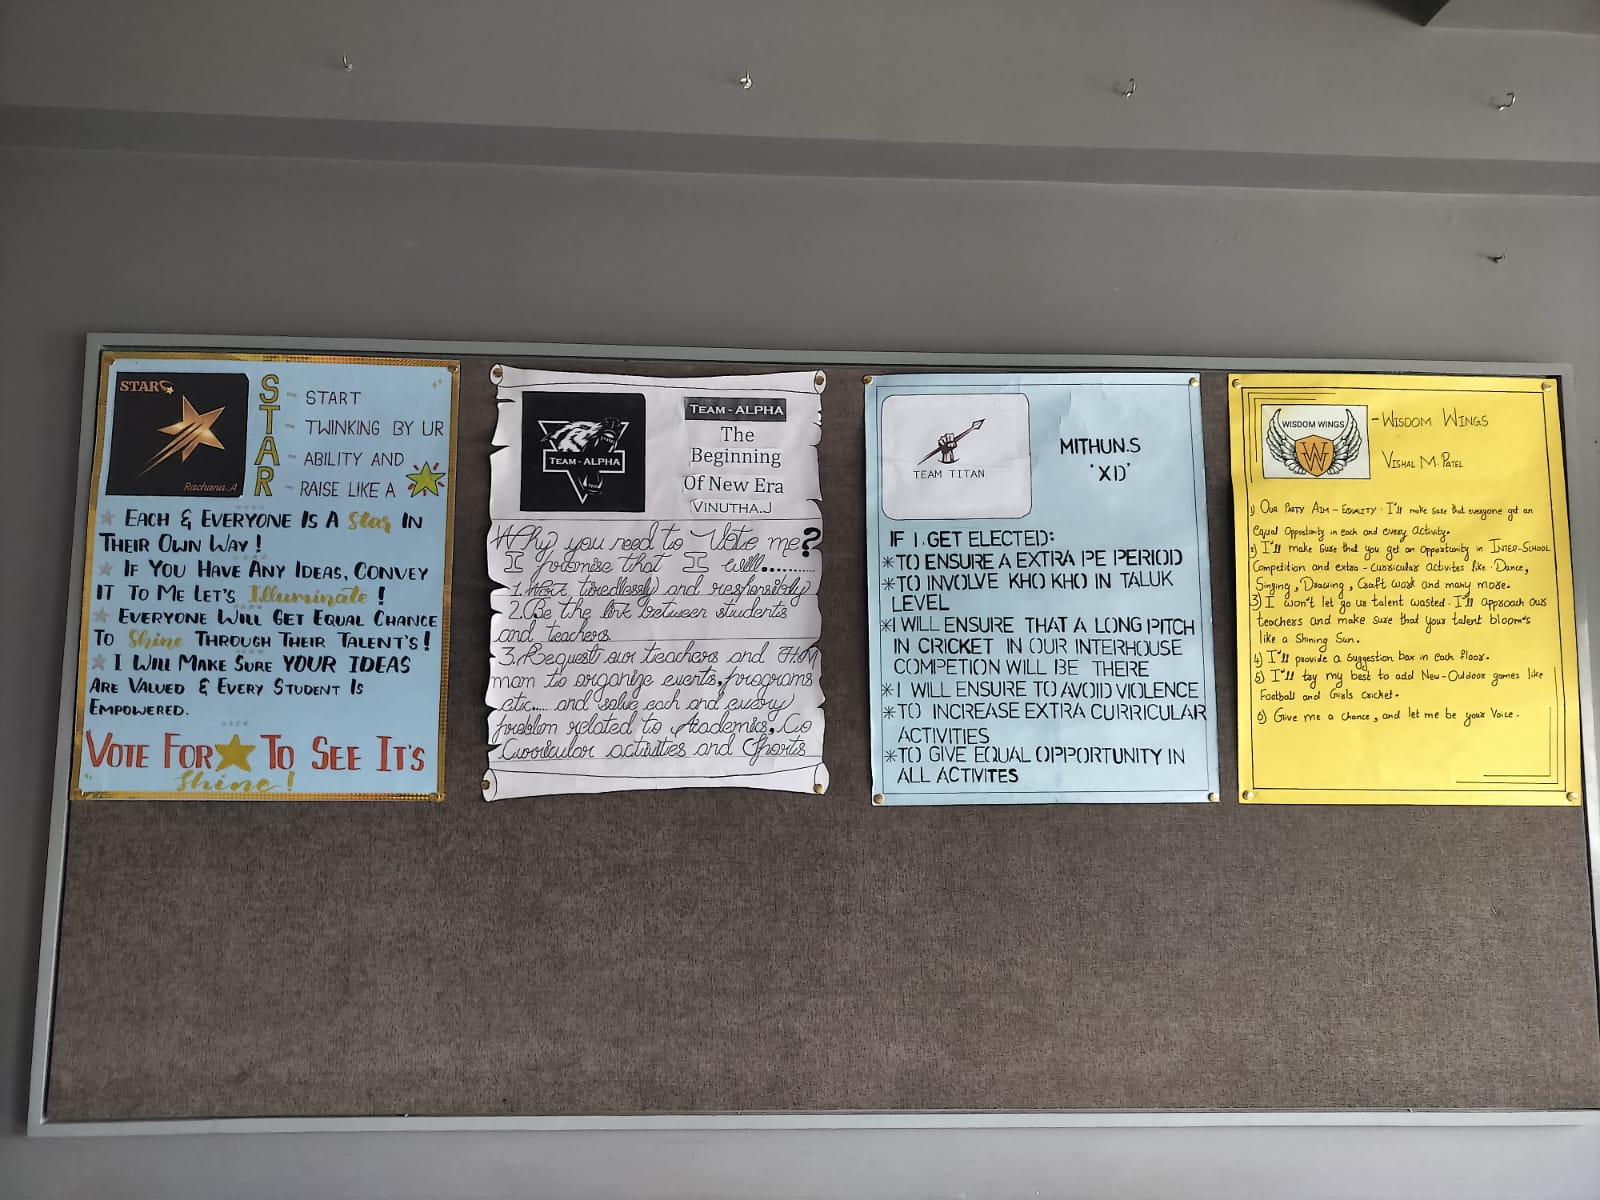 STAR
Rachana.A
S - START
T - TWINKING BY UR
A - ABILITY AND
R - RAISE LIKE A
EACH & EVERYONE IS A Star IN
THEIR OWN WAY!
IF YOU HAVE ANY IDEAS, CONVEY
IT TO ME LET'S Illuminate!
EVERYONE WILL GET EQUAL CHANCE
TO Shine THROUGH THEIR TALENT'S!
I WILL MAKE SURE YOUR IDEAS
ARE VALUED & EVERY STUDENT IS
EMPOWERED.
VOTE FOR TO SEE IT'S
Shine!
TEAM-ALPHA
TEAM-ALPHA
The
Beginning
Of New Era
VINUTHA.J
Why you need to Vote me?
I promise that I will..........
1. Work tiredlessly and responsibly
2. Be the link between students
and teachers
3. Request our teachers and H.M
mam to organize events, programs
etc.... and solve each and every
problem related to Academics, Co
Curricular activities and Sports
TEAM TITAN
MITHUN.S
'XD'
IF I GET ELECTED:
*TO ENSURE A EXTRA PE PERIOD
*TO INVOLVE KHO KHO IN TALUK
LEVEL
*I WILL ENSURE THAT A LONG PITCH
IN CRICKET IN OUR INTERHOUSE
COMPETION WILL BE THERE
*I WILL ENSURE TO AVOID VIOLENCE
*TO INCREASE EXTRA CURRICULAR
ACTIVITIES
*TO GIVE EQUAL OPPORTUNITY IN
ALL ACTIVITES
WISDOM WINGS
W
- WISDOM WINGS
VISHAL M. PATEL
1) OUR PARTY AIM - EQUALITY. I'll make sure that everyone get an
Equal Opportunity in each and every Activity.
2) I'll make sure that you get an Opportunity in INTER-SCHOOL
Competition and extra-curricular activites like Dance,
Singing, Drawing, Craft work and many more.
3) I won't let go us talent wasted. I'll approach our
teachers and make sure that your talent bloom's
like a Shining Sun.
4) I'll provide a Suggestion box in each floor.
5) I'll try my best to add New-Outdoor games like
Football and Girls Cricket.
6) Give me a chance, and let me be your Voice.